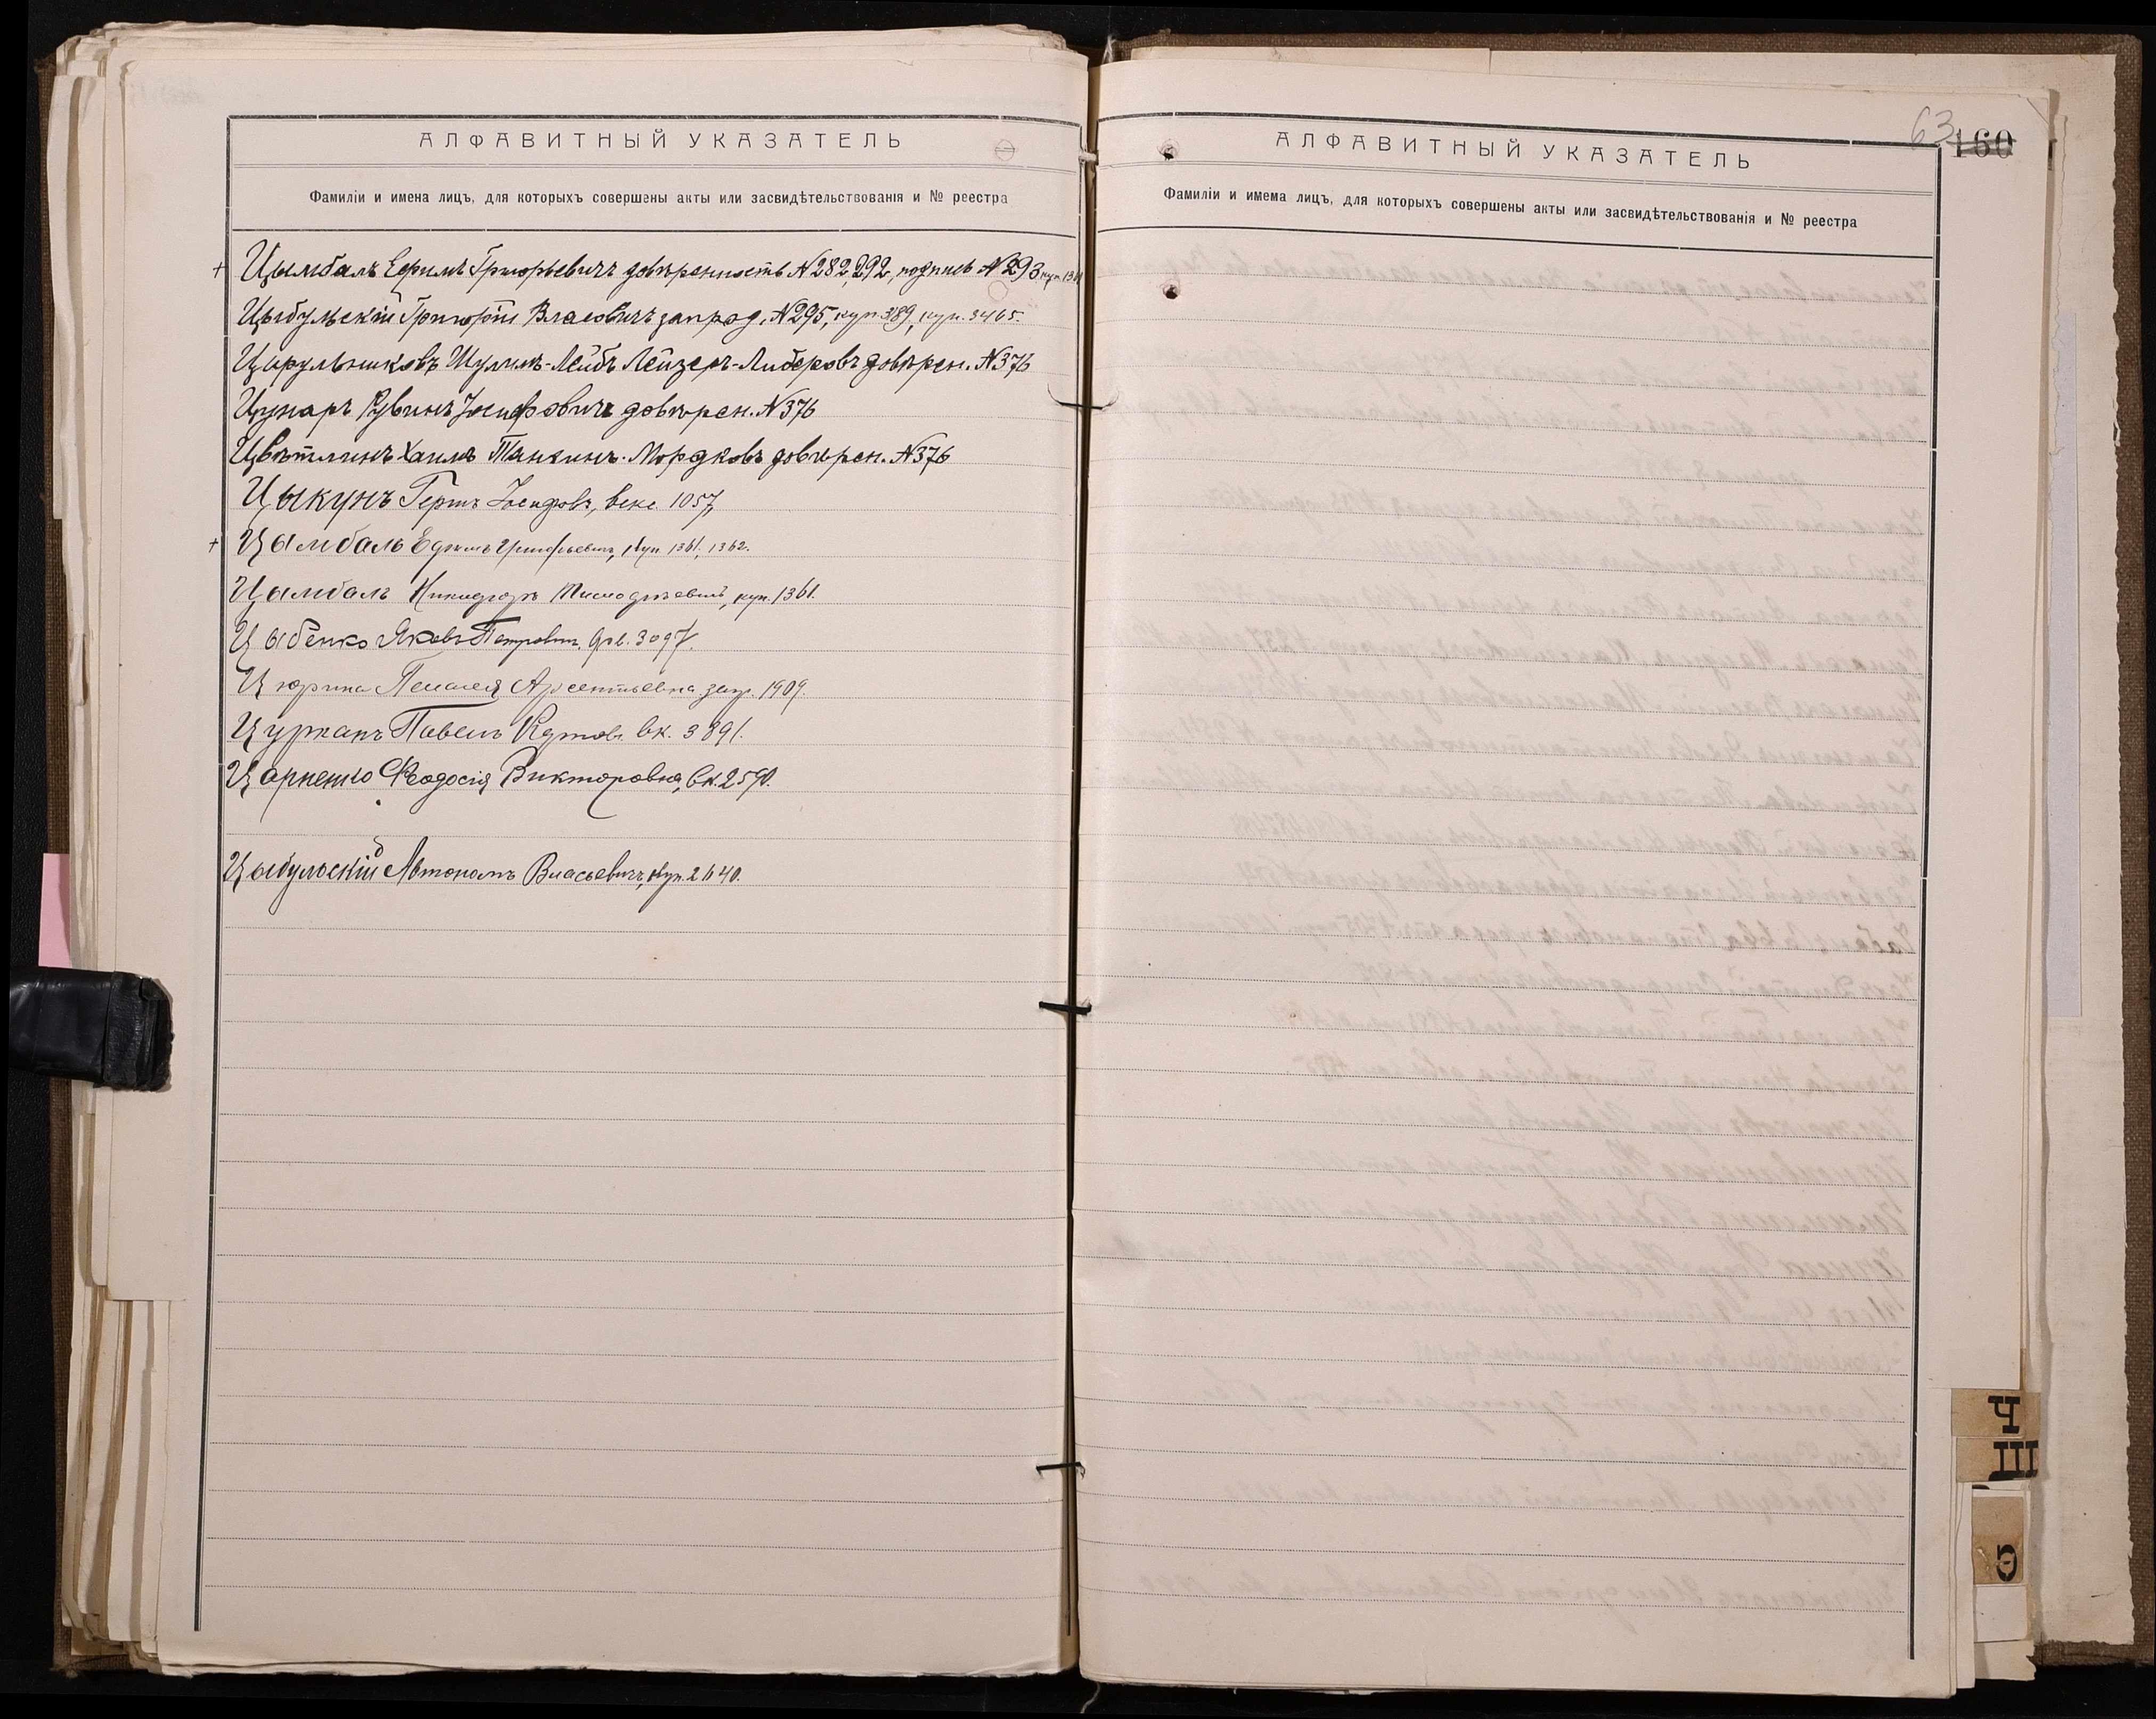 АЛФАВИТНЫЙ УКАЗАТЕЛЬ
Фамиліи и имена лицъ, для которыхъ совершены акты или засвидѣтельствованія и № реестра
+ Цымбалъ Ефимъ Григорьевичъ довѣренность №282, 292, подпись №293, куп. 1361
Цыбульскій Григорій Власовичъ запрод. №295, куп. 3189, куп. 3465.
Цирульниковъ Шулимъ-Лейбъ Лейзеръ-Либеровъ довѣрен. №376
Цукаръ Рувинъ Іосифовичъ довѣрен. №376
Цвѣтлинъ Хаимъ Мордковъ довѣрен. №376
Цыкунъ Гершъ Іосифовъ, векс. 1057,
+ Цымбалъ Ефимъ Григорьевичъ, куп. 1361, 1362.
Цымбалъ Никифоръ Тимофѣевичъ, куп. 1361.
Цыбенко Яковъ Петровичъ, дов. 3097.
Цюрина Пелагея Арсентьевна запр. 1909.
Цурканъ Павелъ вк. 3891.
Царненко Феодосія Викторовна, вк. 2590.
Цыбульскій Автономъ Власьевичъ, куп. 2640.
63
160
АЛФАВИТНЫЙ УКАЗАТЕЛЬ
Фамиліи и имема лицъ, для которыхъ совершены акты или засвидѣтельствованія и № реестра
Ч
Ш